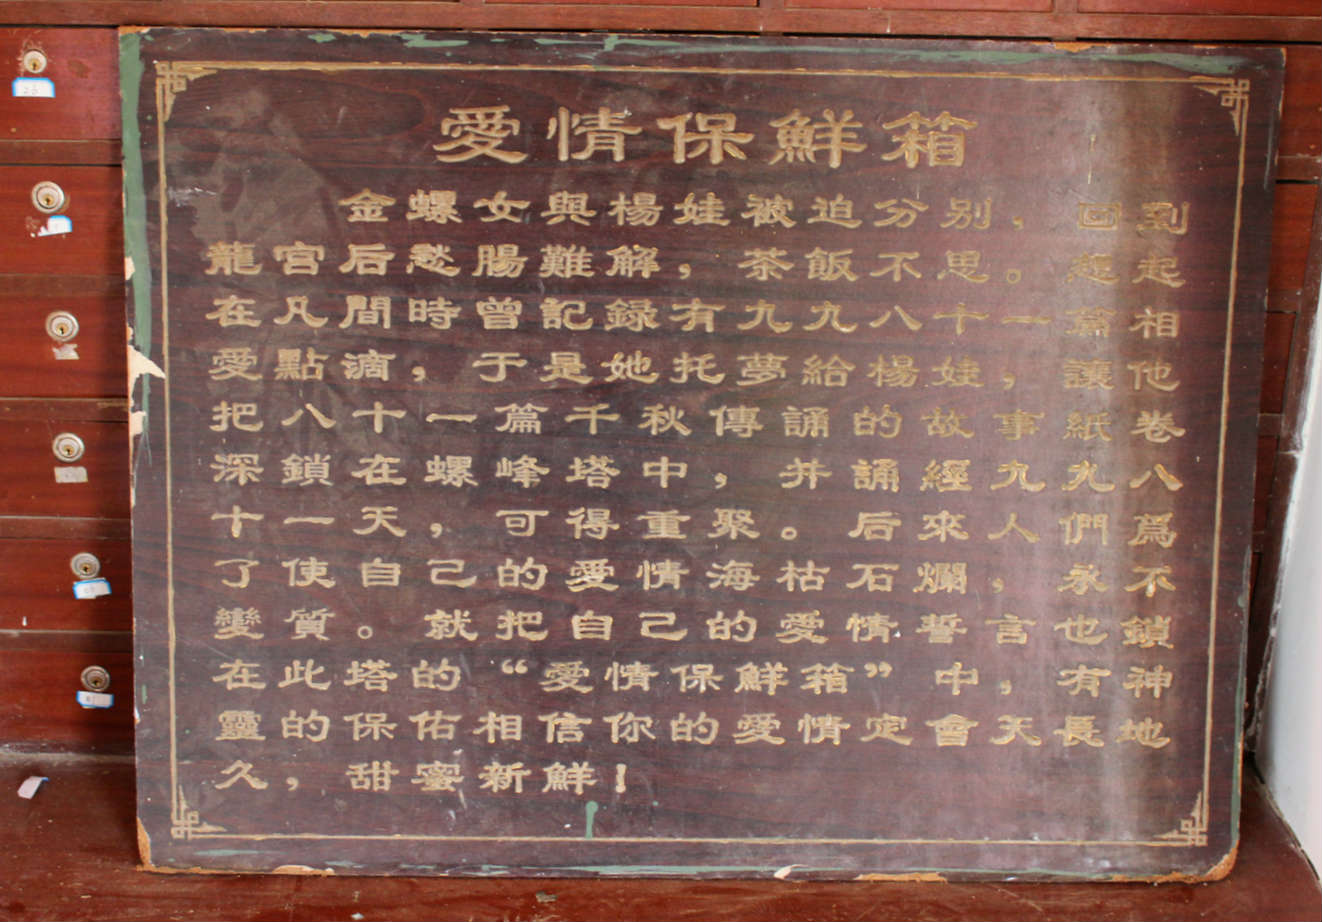 愛情保鮮箱
金螺女與楊娃被迫分别，回到
龍宮后愁腸難解，茶飯不思。想起
在凡間時曾記録有九九八十一篇相
愛點滴，于是她托夢給楊娃，讓他
把八十一篇千秋傳誦的故事紙卷
深鎖在螺峰塔中，并誦經九九八
十一天，可得重聚。后來人們爲
了使自己的愛情海枯石爛，永不
變質。就把自己的愛情誓言也鎖
在此塔的“愛情保鮮箱”中，有神
靈的保佑相信你的愛情定會天長地
久，甜蜜新鮮！